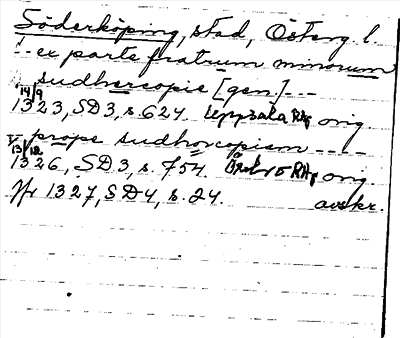 Söderköping, stad, Österg. l.
-- ex parte fratrum minorum
sudhercopie [gen.] ---
14/9
1323, SD3, s. 624. Uppsala RAp orig.
-- prope sudhorcopiem ----
13/12
1326, SD3, s. 754. Örebro RAp orig.
1327, SD4, s. 24. avskr.